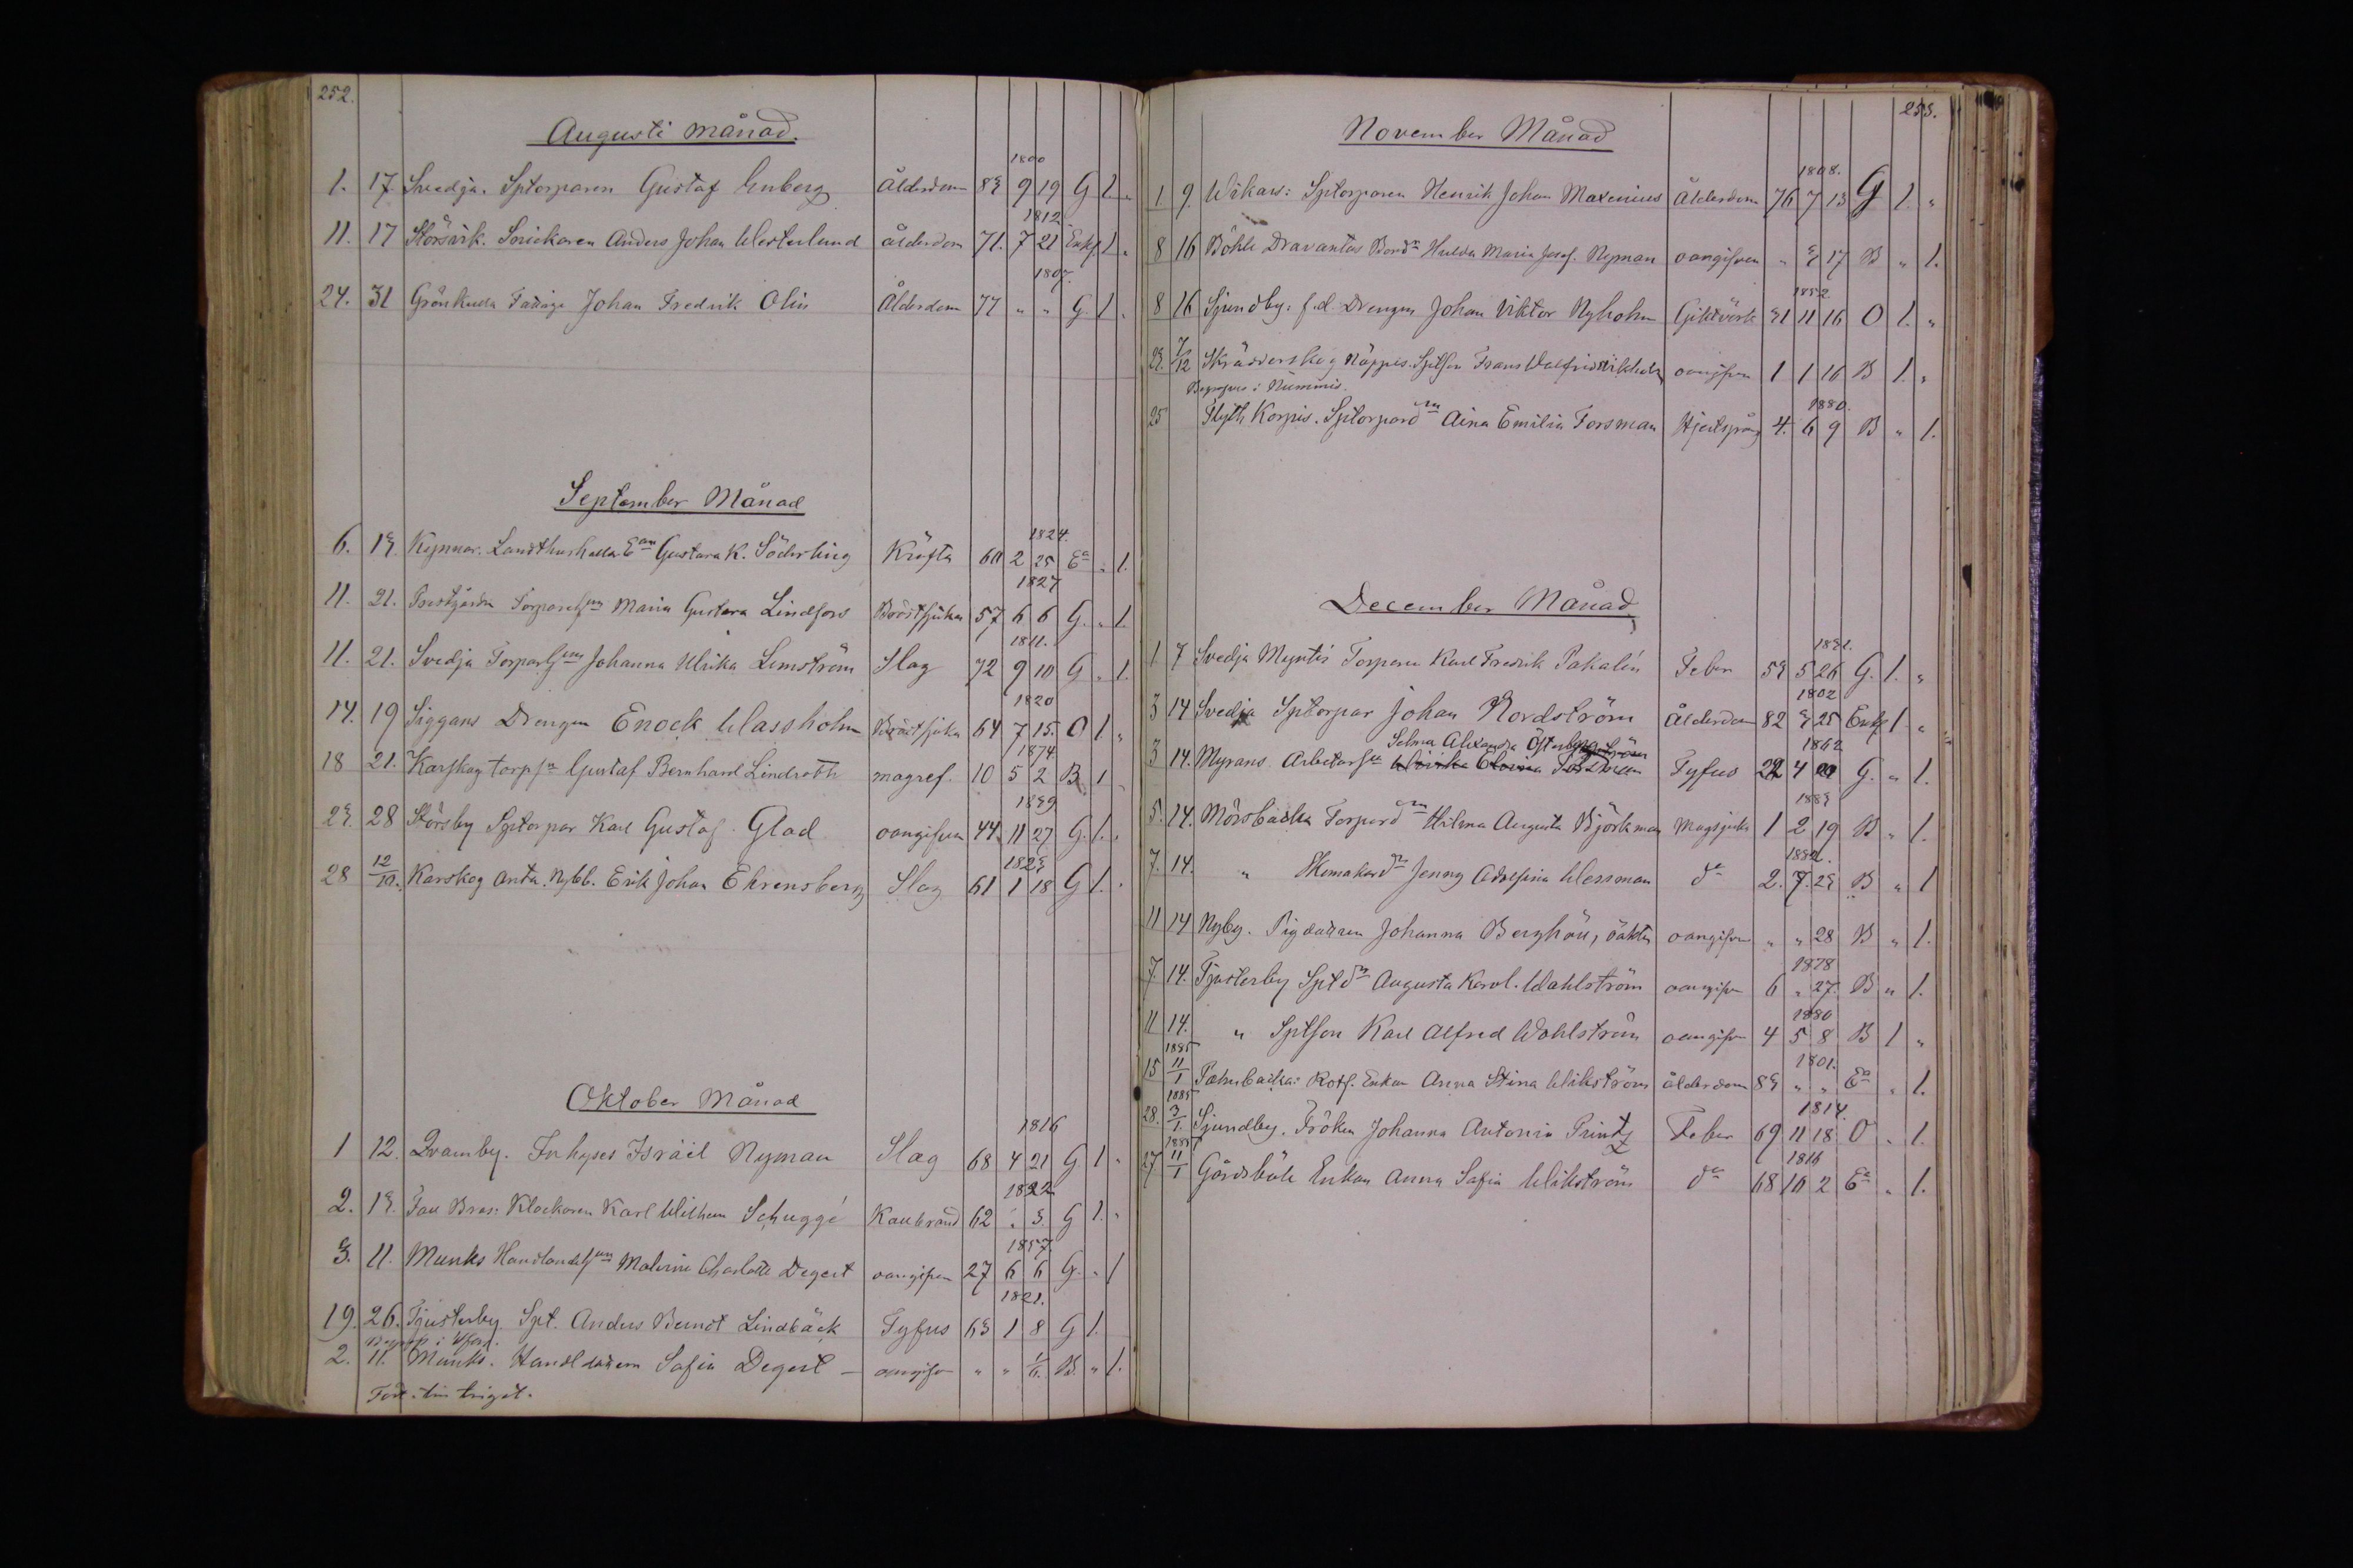 252.
Augusti månad.
1800
1. 17. Svedja. Sptorparen Gustaf Enberg Ålderdom 83 9 19 G 1. "
1812
11. 17 Störsvik. Snickaren Anders Johan Westerlund ålderdom 71. 7 21 Enkl. 1 "
1807.
24. 31 Grönkulla Johan Fredrik Olin Ålderdom 77 " " G. 1 "
September Månad
1824.
6. 13. Kypmar. Gustava K. Söderling Kräfta 60 2 25 Ea " 1.
1827
11. 21. Prestgården Maria Gustava Lindfors Bröstsjukan 57 6 6 G. " 1.
1811.
11. 21. Svedja Johanna Ulrika Lemström Slag 72 9 10 G " 1.
1820
14. 19 Siggans Drengen Enock Classholm Bröstsjuka 64 7 15. O 1 "
1874
18 21. Karskog torpsn Gustaf Bernhard Lindroth magref. 10 5 2 B 1 "
1839
23. 28 Störsby Sptorpar Karl Gustaf Glad oangifven 44. 11 27 G. 1. "
1823
28 12/10. Karskog Anta. Nybb. Erik Johan Ehrensberg Slag 61 1 18 G 1. "
Oktober Månad
1816
1 12. Qvarnby. Inhyses Israel Nyman Slag 68 4 21 G 1 "
1822
2. 13. Klockaren Karl Wilhelm Schuggé Kallbrand 62 " 3. G 1. "
1857.
3. 11. Munks Malvina Charlotta Degert oangifven 27 6 6 G. " 1
1821.
19. 26. Tjusterby Spt. Anders Berndt Lindbäck Tyfus 63 1 8 G 1.
2. 11. Munks. Safia Degert — oangifv " " B. " 1.
253.
November Månad
1808.
1 9. Wikars: Sptorparen Henrik Johan Maxenius Ålderdom 76 7 13 G 1. "
8 16 Böhle Dravantas Hulda Maria Josef. Nyman oangifven " 3 17 B " 1.
1852
8 16 Sjundby: f.d. Drengen Johan Viktor Nyholm Giktvärk 31 11 16 O 1. "
23. 7/12 Skräddarskog Näppes. Sptson Frans Walfrid Wikholm oangifven 1 1 16 B 1. "
Begrafven i Nummis.
1880.
25 Flyth Korpis. Sptorpard Aina Emilia Forsman Hjertsprång 4. 6 9 B " 1.
December Månad
1831.
1 7 Svedja Myntis Torparen Karl Fredrik Pakalén Feber 53 5 26 G. 1. "
1802
3 14 Svedja Sptorpar Johan Nordström Ålderdom 82 3 25 Enkl 1 "
Selma Alexandra Österberg
1862
3 14. Myrans Arbetarsn Tyfus 22 4 G. " 1.
1883
5. 14. Mörsbacka Torpard Hilma Augusta Björkman Magsjuka 1 2 19 B " 1.
1882.
7. 14. " Jenny Adolfina Wessman da 2. 7. 23 B " 1
11 14 Nyby. Pigdottren Johanna Berghäll, oäkta oangifven " " 28 B " 1.
1878
7. 14. Tjusterby Sptd Augusta Karol. Wahlström oangifven 6 " 27. B " 1.
1880
11 14. " Sptson Karl Alfred Wahlström oangifven 4 5 8 B 1 "
1885
1801.
15 11/1 Palmbacka: Rotf. Enkan Anna Stina Wikström ålderdom 83 " " Ea " 1.
1885
1814.
28. 3/1. Sjundby. Fröken Johanna Antonia Printz Feber 69 11 18 O " 1.
1885
1816
27 11/1 Gårdsböle Enkan Anna Safia Wikström da 68 10 2 Ea " 1.